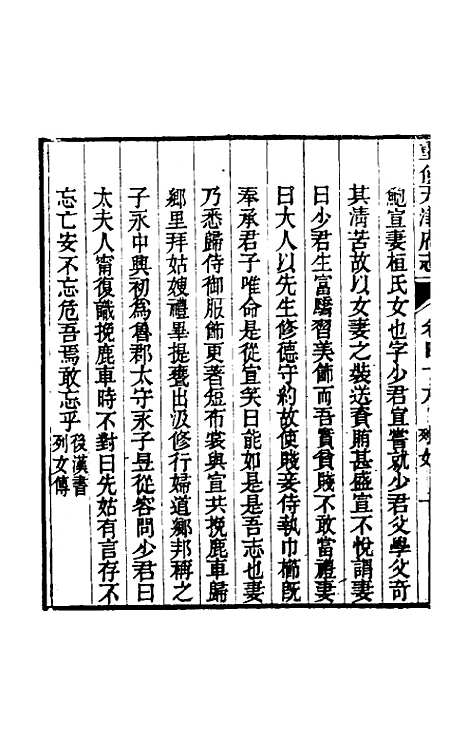 重修天津府志 卷四十九 列女 一
鮑宣妻桓氏女也字少君宣嘗就少君父學父奇
其清苦故以女妻之裝送資賄甚盛宣不悅謂妻
曰少君生富驕習美飾而吾實貧賤不敢當禮妻
曰大人以先生修德守約故使賤妾侍執巾櫛旣
奉承君子唯命是從宣笑曰能如是是吾志也妻
乃悉歸侍御服飾更著短布裳與宣共挽鹿車歸
鄉里拜姑嫂禮畢提甕出汲修行婦道鄉邦稱之
子永中興初爲魯郡太守永子昱從容問少君曰
太夫人甯復識挽鹿車時不對曰先姑有言存不
忘亡安不忘危吾焉敢忘乎後漢書列女傳